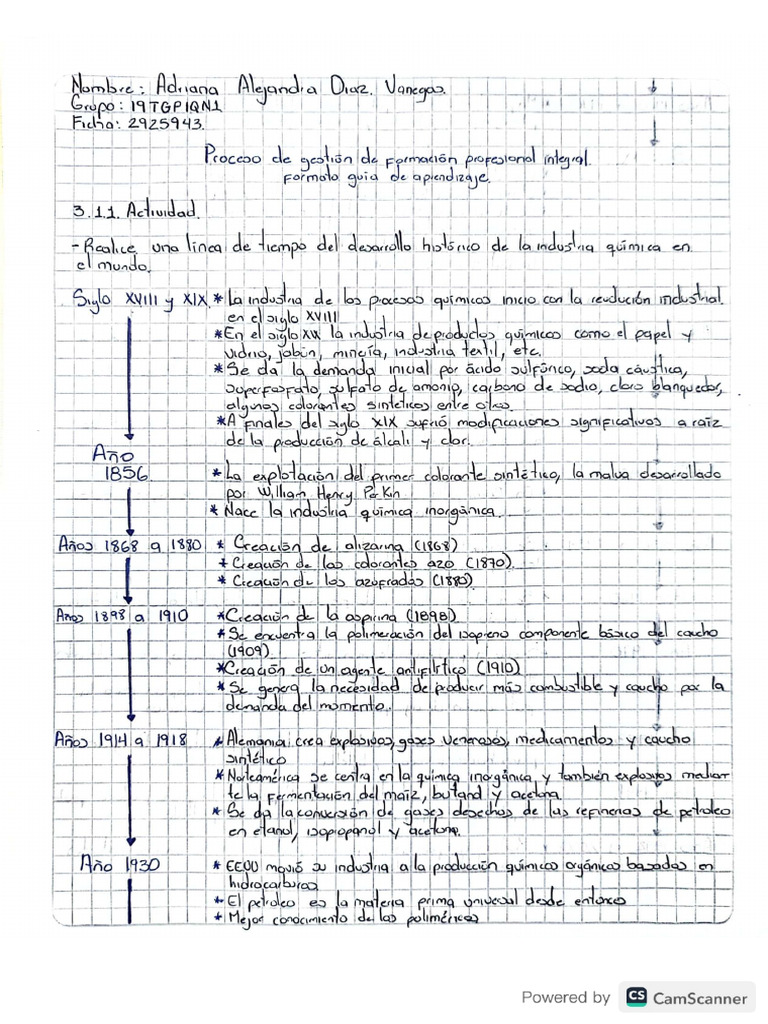 Nombre: Adriana Alejandra Diaz. Vanegas.
Grupo: 19TGPIQN1
Ficha: 2925943.
Proceso de gestión de Formación profesional integral.
Formato guia de aprendizaje.
3.1.1. Actividad.
- Realice una línea de tiempo del desarrollo histórico de la industria química en
el mundo.
Siglo XVIII y XIX * La industria de los procesos químicos inicio con la revolución industrial
en el siglo XVIII
* En el siglo XIX la industria de productos químicos como el papel y
vidrio, jabón, minería, industria textil, etc.
* Se da la demanda inicial por ácido sulfúrico, soda cáustica,
superfosfato, sulfato de amonio, carbono de sodio, cloro blanqueador,
algunos colorantes sintéticos entre otros.
* A finales del siglo XIX sufrió modificaciones significativas a raíz
de la producción de álcali y clor.
Año
1856. * La explotación del primer colorante sintético, la malva desarrollado
por William Henry Perkin
* Nace la industria química inorgánica.
Años 1868 a 1880 * Creación de alizarina (1868)
* Creación de los colorantes azo (1870).
* Creación de los azufrados (1880)
Años 1898 a 1910 * Creación de la aspirina (1898)
* Se encuentra la polimeración del isopreno componente básico del caucho
(1909).
* Creación de un agente antifilítico (1910)
* Se genera la necesidad de producir más combustible y caucho por la
demanda del momento.
Años 1914 a 1918 * Alemania crea explosivos, gases venenosos, medicamentos y caucho
sintético
* Norteamérica se centra en la química inorgánica y también explosivos median
te la fermentación del maíz, butanol y acetona.
* Se da la conversión de gases desechos de las refinerias de petroleo
en etanol, isopropanol y acetona.
Año 1930 * EEUU movió su industria a la producción químicos orgánicos basados en
hidrocarburos
* El petroleo es la materia prima universal desde entonces
* Mejor conocimiento de las poliméricas
Powered by CS CamScanner